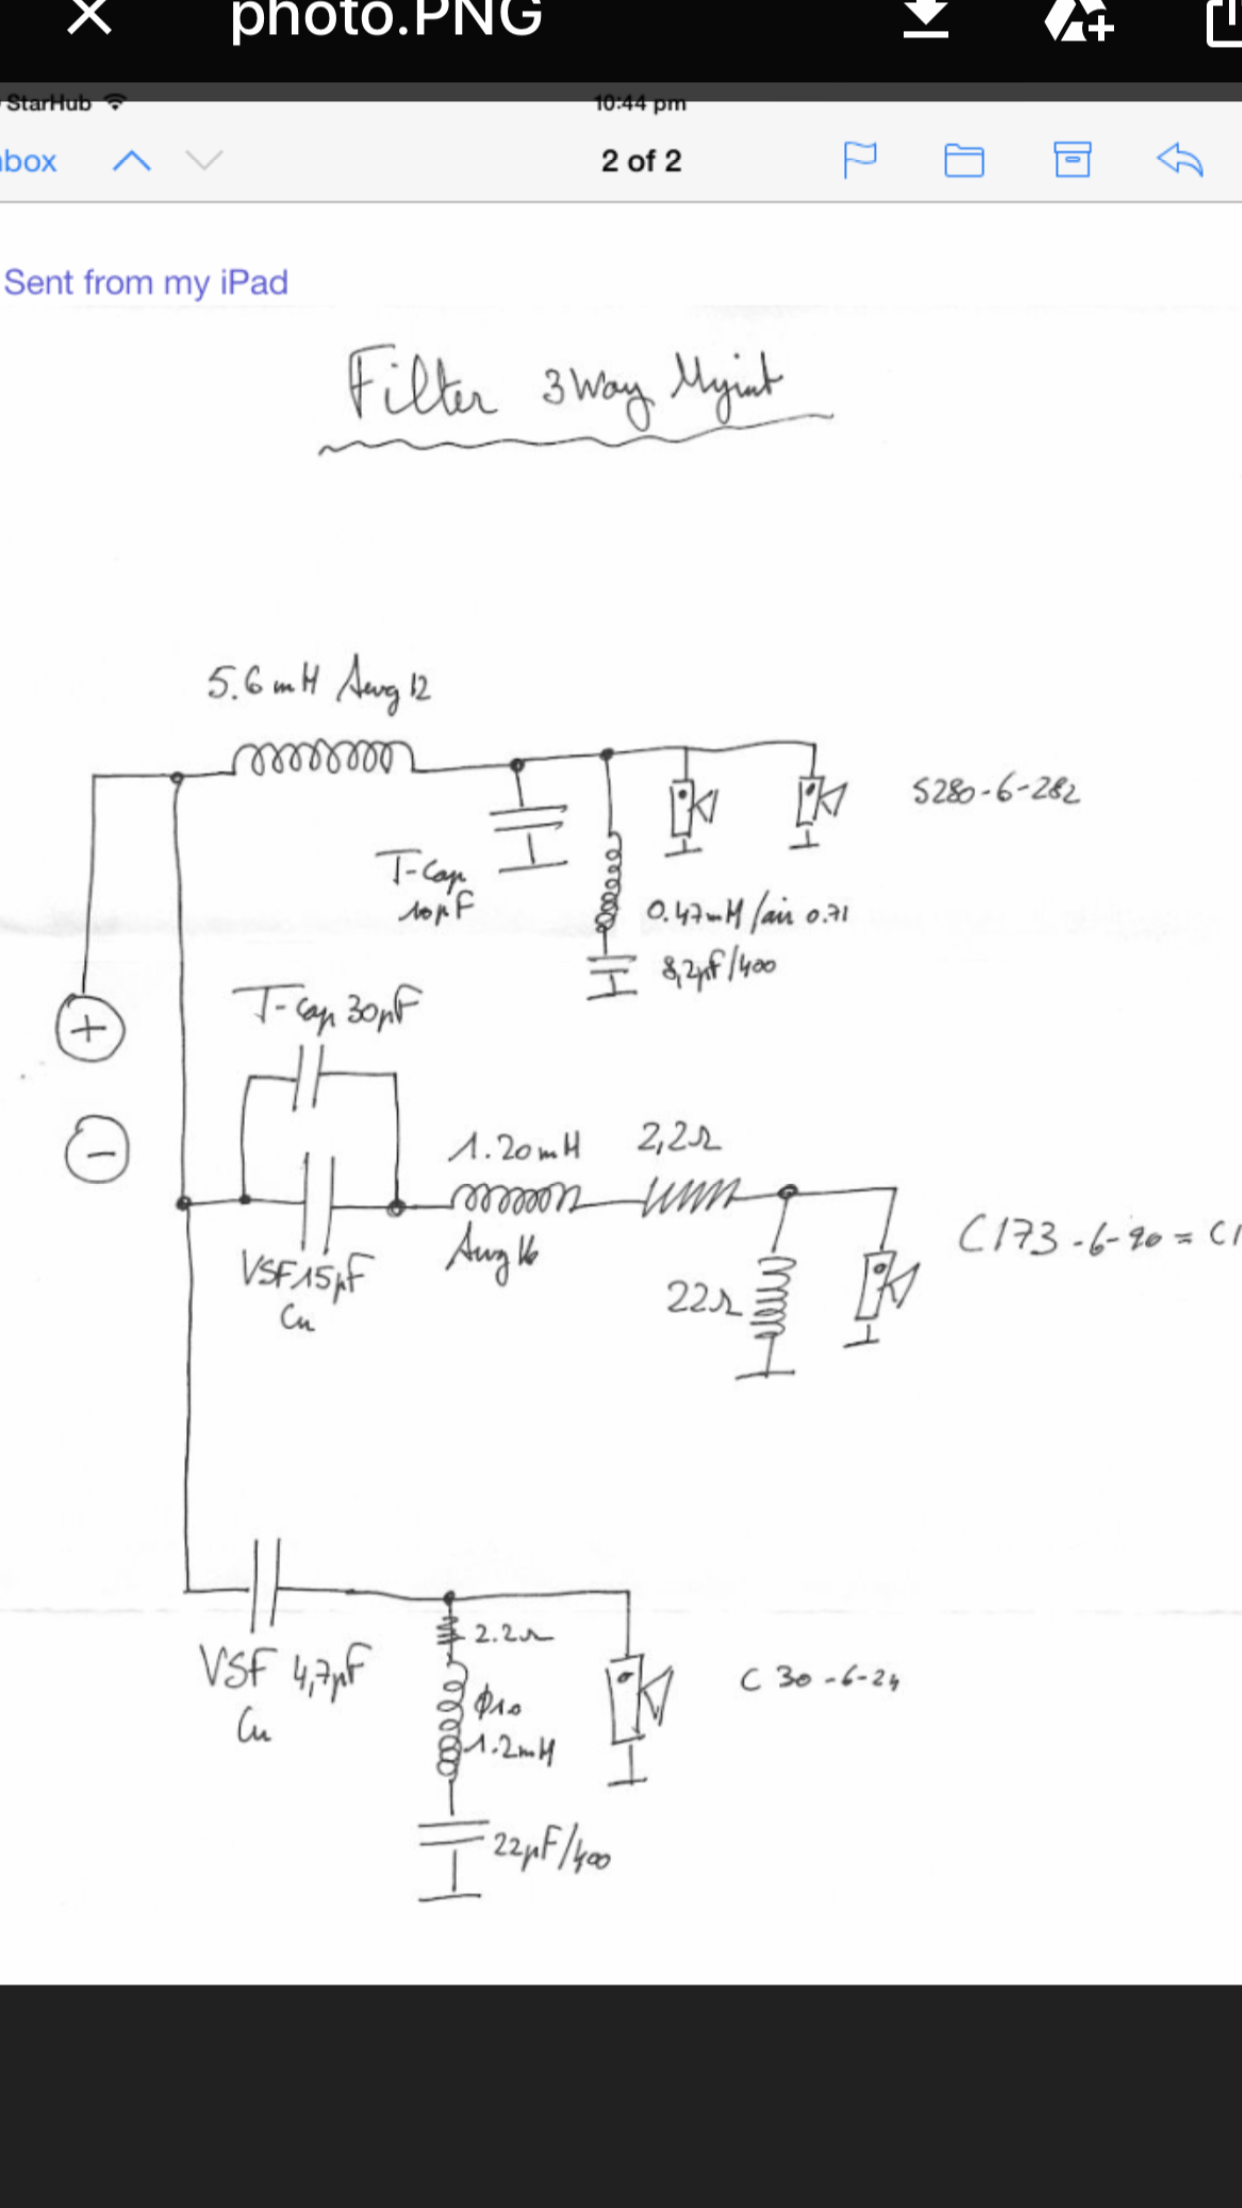 photo.PNG
StarHub
10:44 pm
nbox
2 of 2
Sent from my iPad
Filter 3Way Myint
5.6mH Awg 12
S280-6-282
T-Cap
10µF
0.47mH/air 0.71
8,2µF/400
T-Cap 30µF
+
-
1.20mH
2,2Ω
Awg 16
VSF 15µF
Cu
22Ω
C173-6-90 = C1
VSF 4,7µF
Cu
2.2Ω
ϕ10
1.2mH
C30-6-24
22µF/400